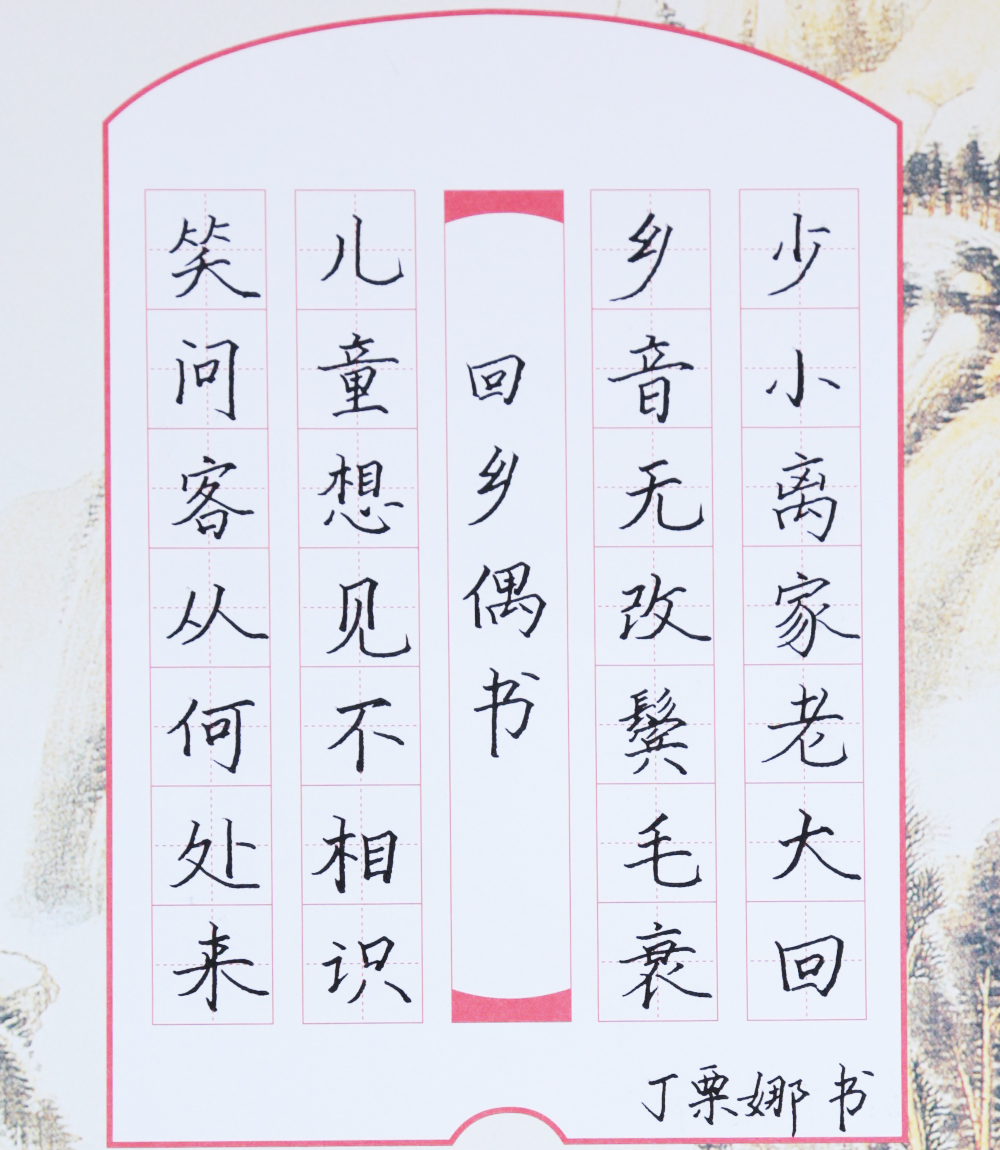 少小离家老大回
乡音无改鬓毛衰
回乡偶书
儿童想见不相识
笑问客从何处来
丁栗娜书